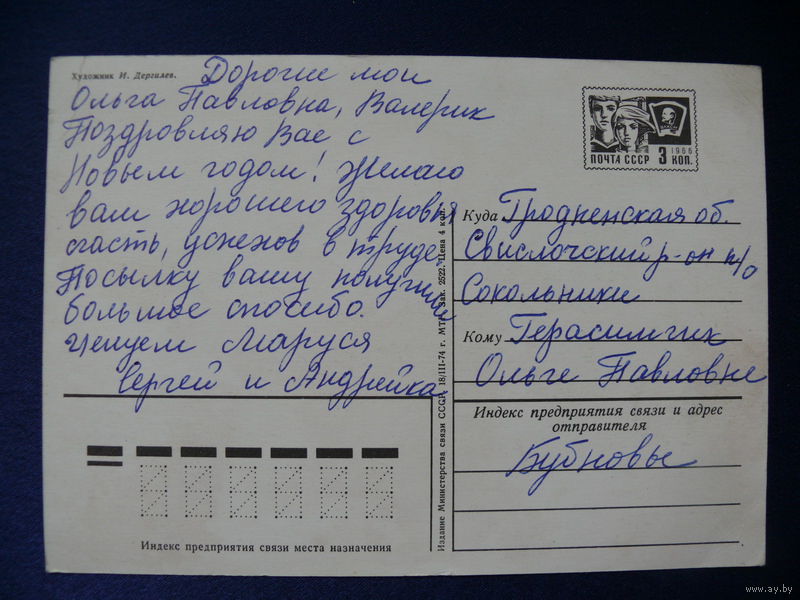 Художник И. Дергилев.
Дорогие мои
Ольга Павловна, Валерик
Поздровляю Вас с
Новым годом! Желаю
вам хорошего здоровья
счасть, успехов в труде
Посылку вашу получили
большое спосибо.
Целуем Маруся
Сергей и Андрейка
ПОЧТА СССР 3 КОП.
1966
Куда Гродненская об.
Свислочский р-он п/о
Сокольники
Кому Герасимчик
Ольге Павловне
Индекс предприятия связи и адрес
отправителя
Бубновы
Издание Министерства связи СССР. 18/III-74 г. МТГ. Зак. 2522. Цена 4 коп.
Индекс предприятия связи места назначения
www.ay.by